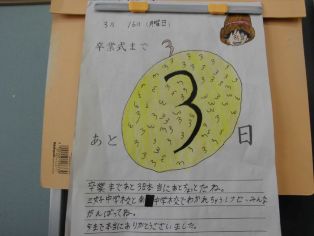 3月 16日(月曜日)
卒業式まで
3
あと 日
卒業まであと3日本当にあとちょっとだね。
中学校と 中学校でわかれちゃうけど、みんな
がんばってね。
今まで本当にありがとうございました。